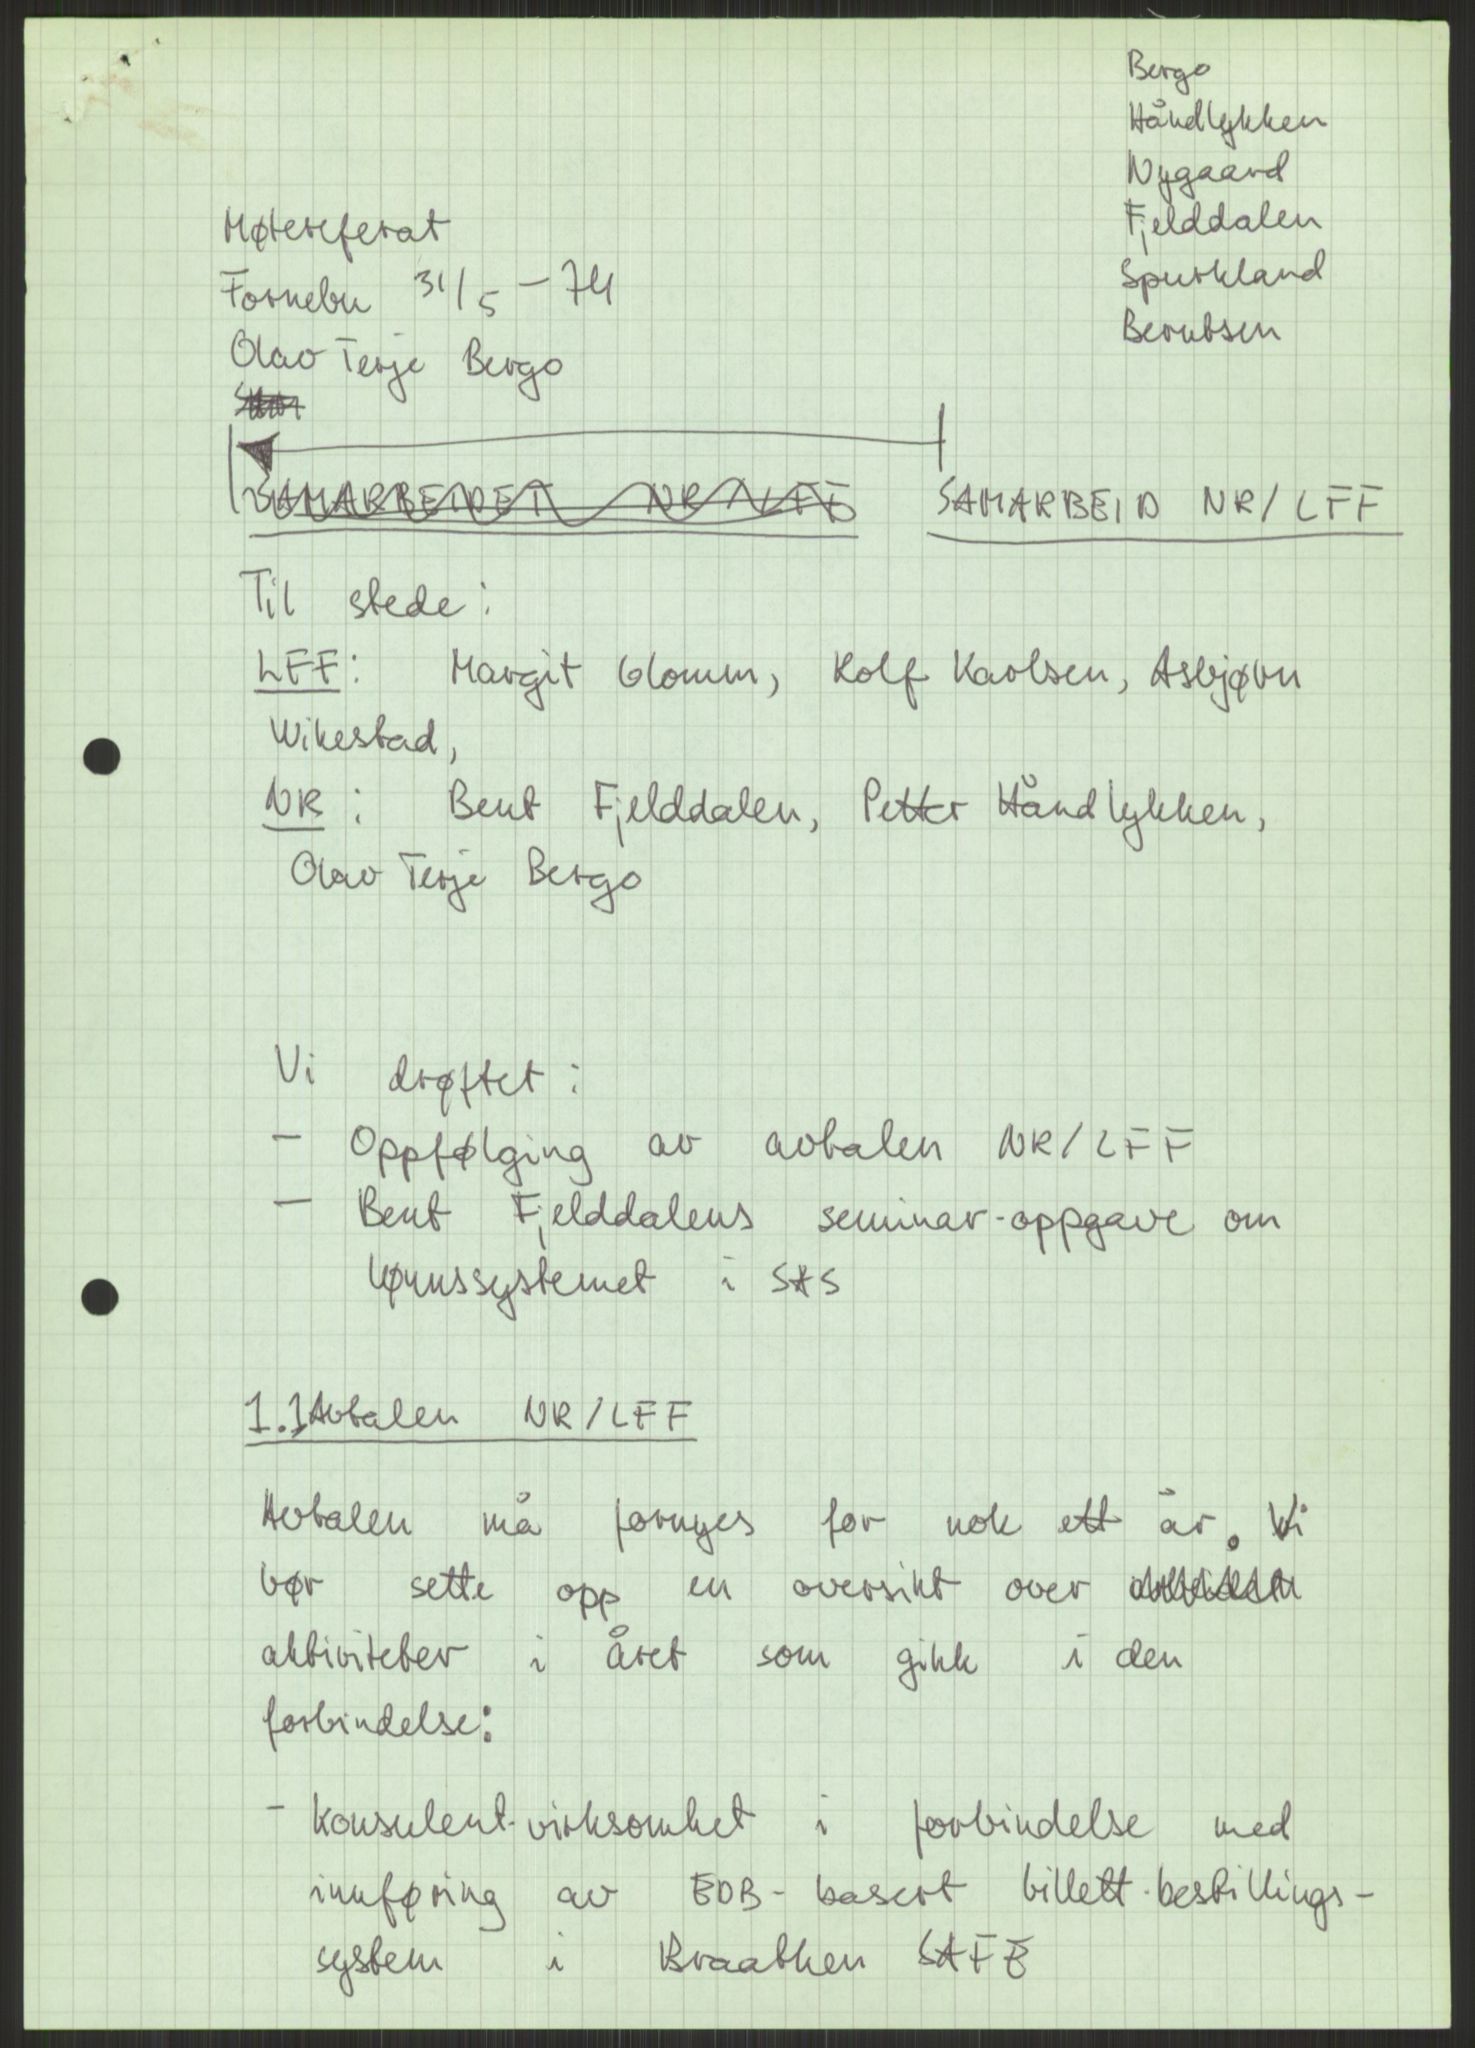 Bergo
Håndlykken
Nygaard
Fjelddalen
Spurkland
Berntsen
Møtereferat
Fornebu 31/5 – 74
Olav Terje Bergo
SAMARBEIDET NR/LFF
SAMARBEID NR/LFF
Til stede:
LFF: Margit Glomm, Rolf Karlsen, Asbjørn
Wikestad,
NR: Bent Fjelddalen, Petter Håndlykken,
Olav Terje Bergo
Vi drøftet:
– Oppfølging av avtalen NR/LFF
– Bent Fjelddalens seminar-oppgave om
lønnssystemet i SAS
1.1 Avtalen NR/LFF
Avtalen må fornyes for nok ett år. Vi
bør sette opp en oversikt over
aktiviteter i året som gikk i den
forbindelse:
- Konsulent-virksomhet i forbindelse med
innføring av EDB-basert billett-bestillings-
system i Braathen SAFE